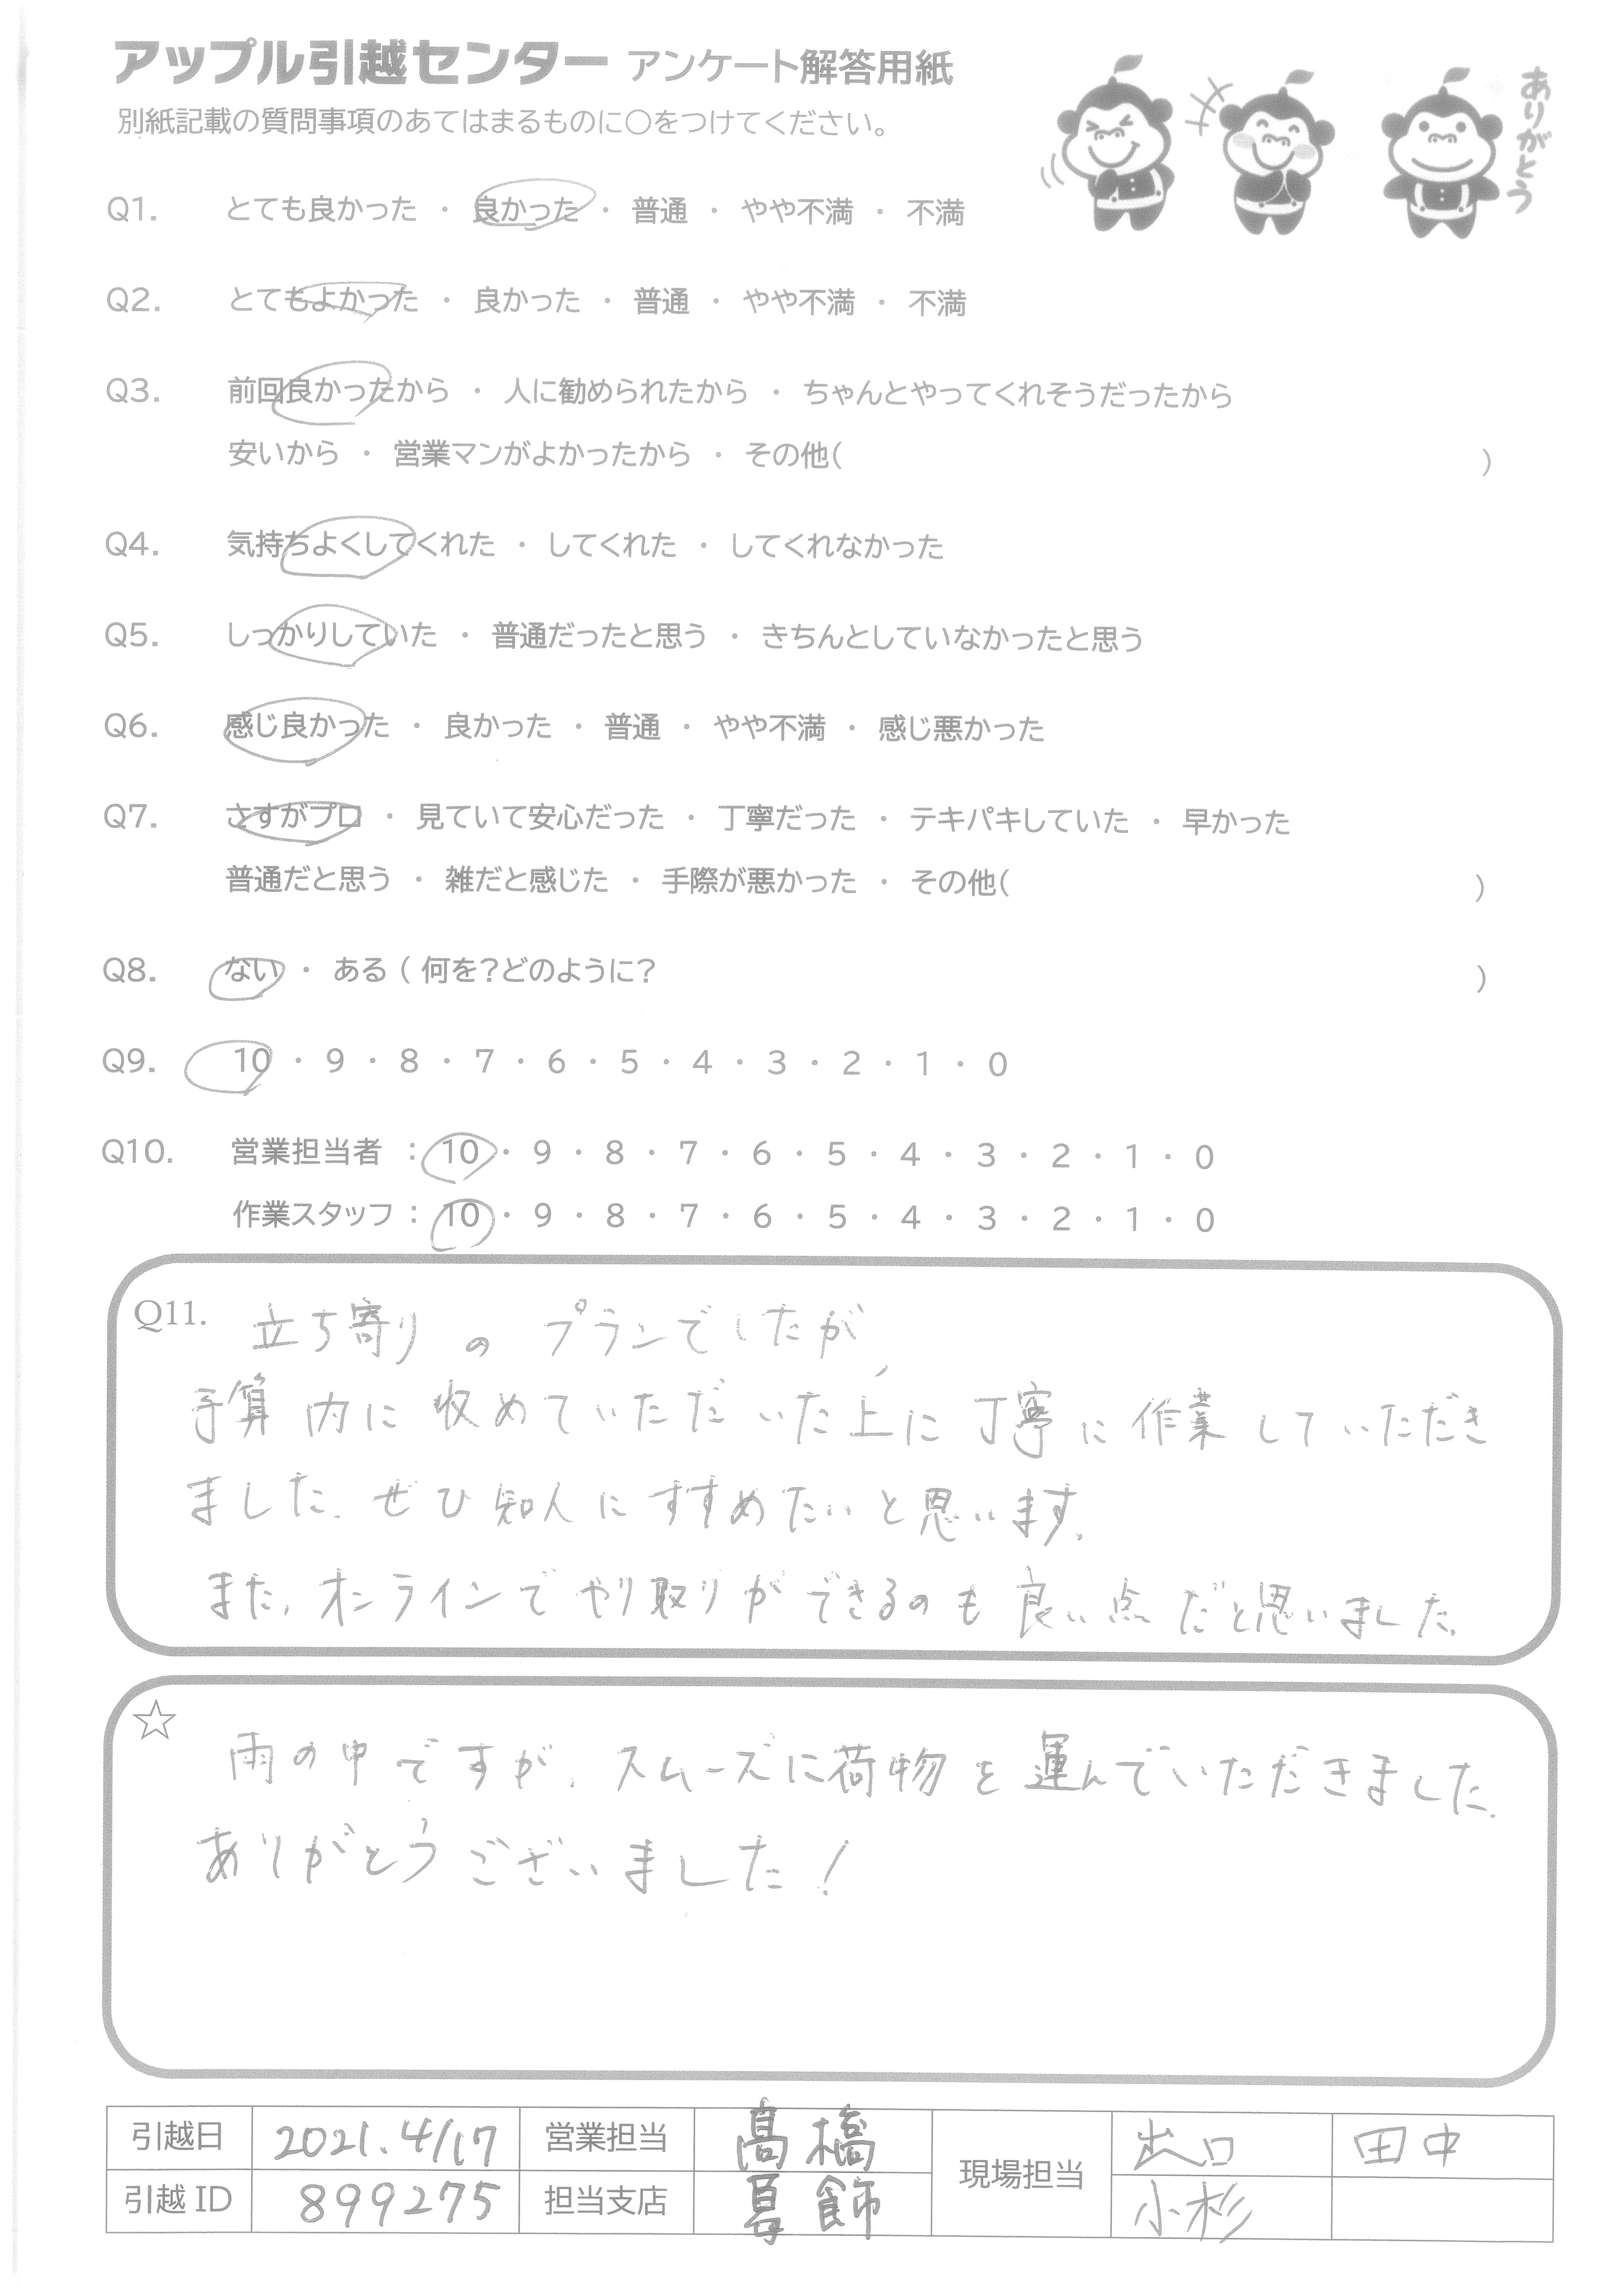 アップル引越センター アンケート解答用紙
別紙記載の質問事項のあてはまるものに○をつけてください。
ありがとう
Q1. とても良かった ・ 良かった ・ 普通 ・ やや不満 ・ 不満
Q2. とてもよかった ・ 良かった ・ 普通 ・ やや不満 ・ 不満
Q3. 前回良かったから ・ 人に勧められたから ・ ちゃんとやってくれそうだったから
安いから ・ 営業マンがよかったから ・ その他( )
Q4. 気持ちよくしてくれた ・ してくれた ・ してくれなかった
Q5. しっかりしていた ・ 普通だったと思う ・ きちんとしていなかったと思う
Q6. 感じ良かった ・ 良かった ・ 普通 ・ やや不満 ・ 感じ悪かった
Q7. さすがプロ ・ 見ていて安心だった ・ 丁寧だった ・ テキパキしていた ・ 早かった
普通だと思う ・ 雑だと感じた ・ 手際が悪かった ・ その他( )
Q8. ない ・ ある ( 何を？どのように？ )
Q9. 10 ・ 9 ・ 8 ・ 7 ・ 6 ・ 5 ・ 4 ・ 3 ・ 2 ・ 1 ・ 0
Q10. 営業担当者 : 10 ・ 9 ・ 8 ・ 7 ・ 6 ・ 5 ・ 4 ・ 3 ・ 2 ・ 1 ・ 0
作業スタッフ : 10 ・ 9 ・ 8 ・ 7 ・ 6 ・ 5 ・ 4 ・ 3 ・ 2 ・ 1 ・ 0
Q11. 立ち寄りの プランでしたが、
予算内に収めていただいた上に丁寧に作業していただき
ました。ぜひ知人にすすめたいと思います。
また、オンラインでやり取りができるのも良い点だと思いました。
☆ 雨の中ですが、スムーズに荷物を運んでいただきました。
ありがとうございました！
引越日 2021.4/17 営業担当 髙橋 現場担当 出口 田中
引越ID 899275 担当支店 葛飾 小杉